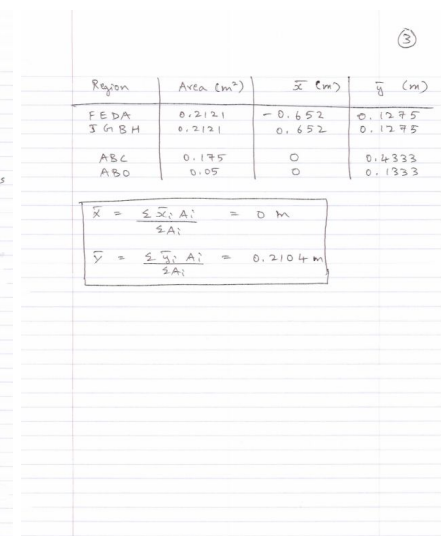 3
Region Area (m²) x̄ (m) ȳ (m)
FEDA 0.2121 -0.652 0.1275
JGBH 0.2121 0.652 0.1275
ABC 0.175 0 0.4333
ABO 0.05 0 0.1333
x̄ = Σ x̄ᵢ Aᵢ / ΣAᵢ = 0 m
ȳ = Σ ȳᵢ Aᵢ / ΣAᵢ = 0.2104 m
s